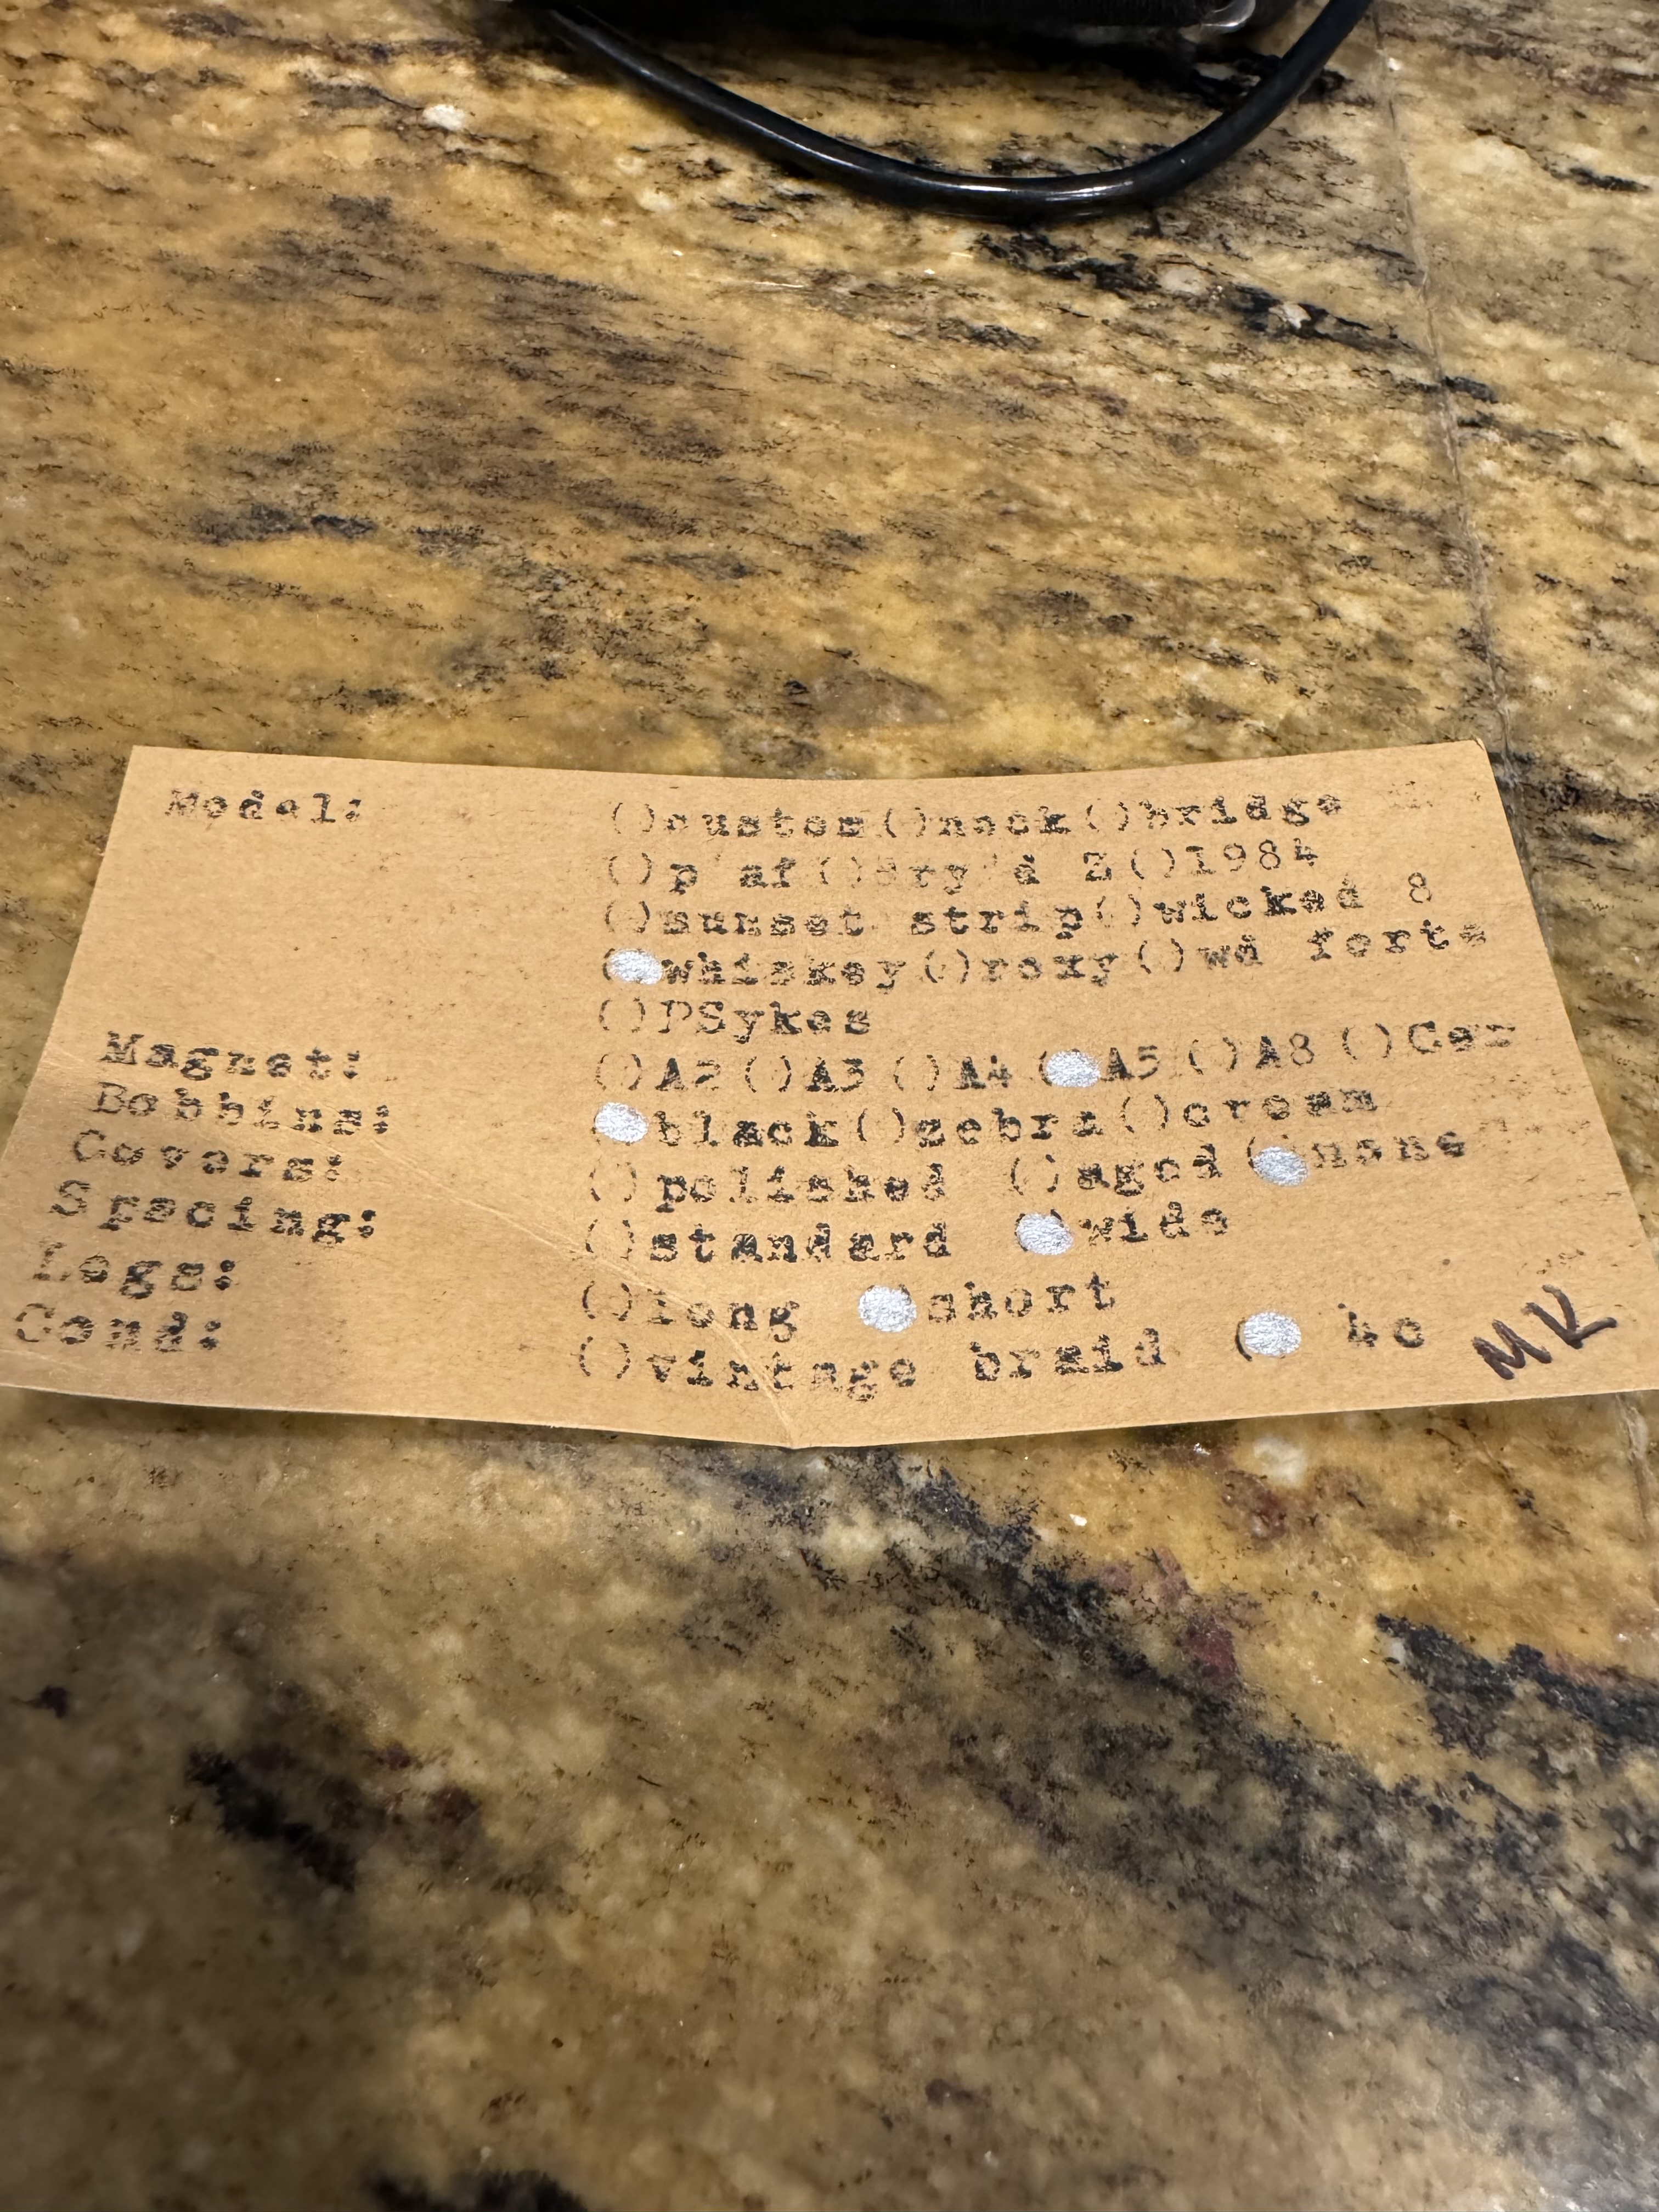 Model: ()custom()neck()bridge
()p af()Bry's B()1984
()sunset strip()wicked 8
()whiskey()roxy()wd forts
()PSykes
Magnet: ()A2()A3()A4()A5()A8()Cer
Bobbins: ()black()zebra()cream
Covers: ()polished ()aged()none
Spacing: ()standard ()wide
Legs: ()long ()short
Cond: ()vintage braid () 4c
MK